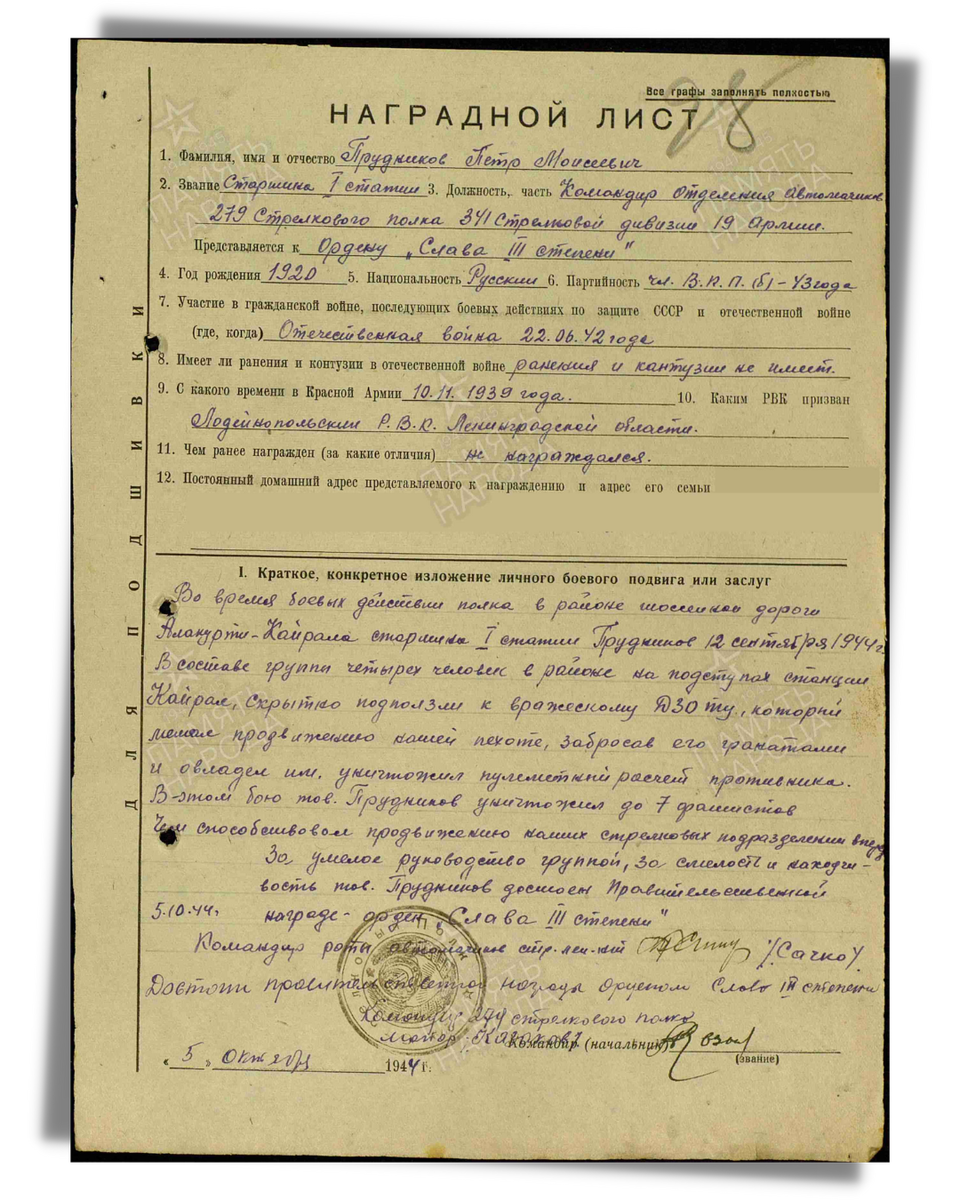 Все графы заполнять полностью
78
НАГРАДНОЙ ЛИСТ
1. Фамилия, имя и отчество Прудников Петр Моисеевич
2. Звание Старшина I статии 3. Должность, часть Командир Отделения Автоматчиков
279 Стрелкового полка 341 Стрелковой дивизии 19 Армии.
Представляется к Ордену „Слава III степени"
4. Год рождения 1920 5. Национальность Русский 6. Партийность чл. В.К.П.(б) - 43 года
7. Участие в гражданской войне, последующих боевых действиях по защите СССР и отечественной войне
(где, когда) Отечественная война 22.06.42 года
8. Имеет ли ранения и контузии в отечественной войне ранения и кантузии не имеет.
9. С какого времени в Красной Армии 10.11.1939 года. 10. Каким РВК призван
Лодейнопольским Р.В.К. Ленинградской области.
11. Чем ранее награжден (за какие отличия) не награждался.
12. Постоянный домашний адрес представляемого к награждению и адрес его семьи
ДЛЯ ПОДШИВКИ
I. Краткое, конкретное изложение личного боевого подвига или заслуг
Во время боевых действии полка в районе шоссейной дороги
Алакурти-Кайрала старшина I статии Прудников 12 сентября 1944 г.
В составе группы четырех человек в районе на подступах станции
Кайрал, скрытно подползли к вражескому ДЗОТу, который
мешал продвижению нашей пехоте, забросав его гранатами
и овладел им, уничтожил пулеметный расчет противника.
В этом бою тов. Прудников уничтожил до 7 фашистов
Чем способствовал продвижению наших стрелковых подразделении вперед
За умелое руководство группой, за смелость и находчи-
вость тов. Прудников достоен Правительственной
5.10.44г. награде - орден „Слава III степени"
Командир роты автоматчиков ст. лен-нт /Сачко/.
Достоин правительственной награды орденом Слава III степени
Командир 279 стрелкового полка
майор
Командир (начальник)
(звание)
„5" Октября 1944 г.
ПАМЯТЬ НАРОДА